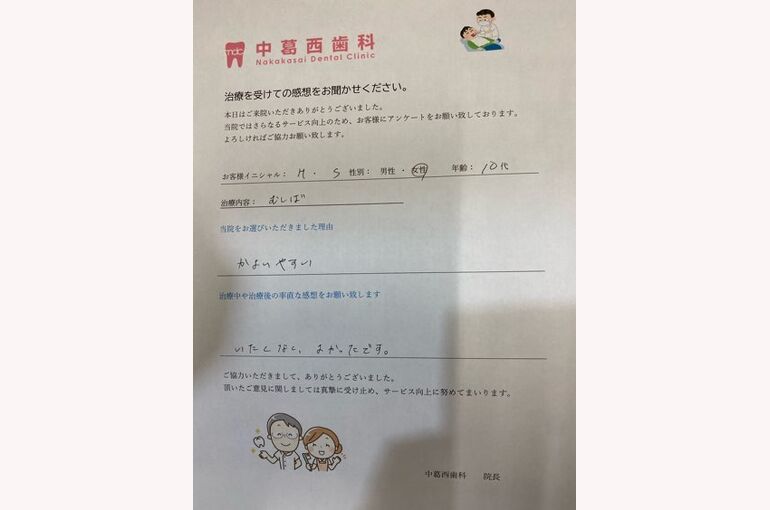 mdc
中葛西歯科
Nakakasai Dental Clinic
治療を受けての感想をお聞かせください。
本日はご来院いただきありがとうございました。
当院ではさらなるサービス向上のため、お客様にアンケートをお願い致しております。
よろしければご協力お願い致します。
お客様イニシャル： M ・ S 性別： 男性 ・ 女性 年齢： 10代
治療内容： むしば
当院をお選びいただきました理由
かよいやすい
治療中や治療後の率直な感想をお願い致します
いたくなく、よかったです。
ご協力いただきまして、ありがとうございました。
頂いたご意見に関しましては真摯に受け止め、サービス向上に努めてまいります。
中葛西歯科 院長